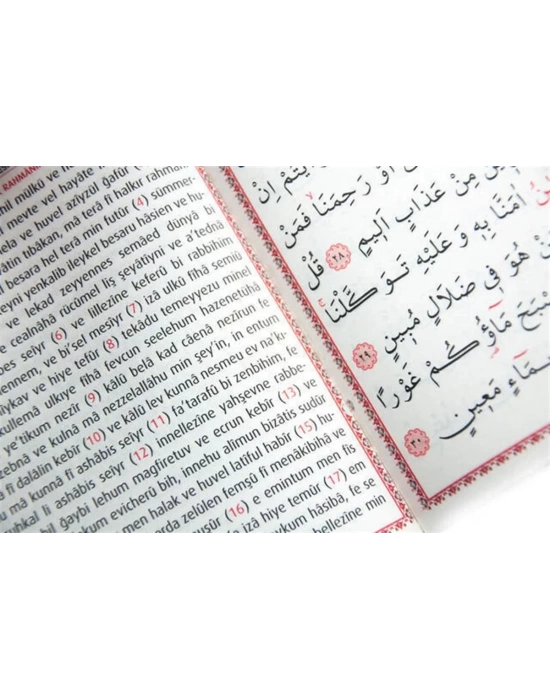 RAHMAN
hil mülkü ve h
l mevte vel hayate
ela ve huvel azîyzül gafûr
vâtin tıbâkan, mâ terâ fî halkır rahman
l besara hel terâ min futûr (4) sümmer-
teyni yenkalib ileykel besaru hâsien ve hu-
ve lekad zeyyennes semâed dünyâ bi
e cealnâhâ rücûmel liş şeyâtîyni ve a'tednâ
bes seîyr (6) ve lillezîne keferû bi rabbihim
ennem, ve bi'sel mesîyr (7) izâ ulkû fîhâ semiû
hîykav ve hiye tefûr (8) tekâdu temeyyezu minel
küllemâ ulkıye fîhâ fevcun seelehum hazenetühâ
ye'tikum nezîr (9) kâlû belâ kad câenâ nezîrun fe
zebnâ ve kulnâ mâ nezzelallâhu min şey'in, in entum
â fî dalâlin kebîr (10) ve kâlû lev kunnâ nesmeu ev na'ku-
u mâ kunnâ fî ashâbis seîyr (11) fa'tarafû bi zenbihim, fe
uhkal li ashâbis seîyr (12) innellezîne yahşevne rabbe-
bil ğaybi lehum mağfiretuv ve ecrun kebîr (13) ve
kum evicherû bih, innehu alîmun bizâtis sudûr
men halak ve huvel latîful habîr (15) hu-
arda zelûlen femşû fî menâkibihâ ve
nuşûr (16) e emintum men fis
e izâ hiye temûr (17) em
aykum hâsibâ, fe se
bellezîne min
يْتُمْ اِنْ
اَوْ رَحِمَنَا فَمَنْ
مِنْ عَذَابٍ اَلِيمٍ ٢٨ قُلْ
اٰمَنَّا بِهِ وَعَلَيْهِ تَوَكَّلْنَا
هُوَ فِى ضَلَالٍ مُبِينٍ ٢٩
صْبَحَ مَاؤُكُمْ غَوْرًا
مَاءٍ مَعِينٍ ٣٠